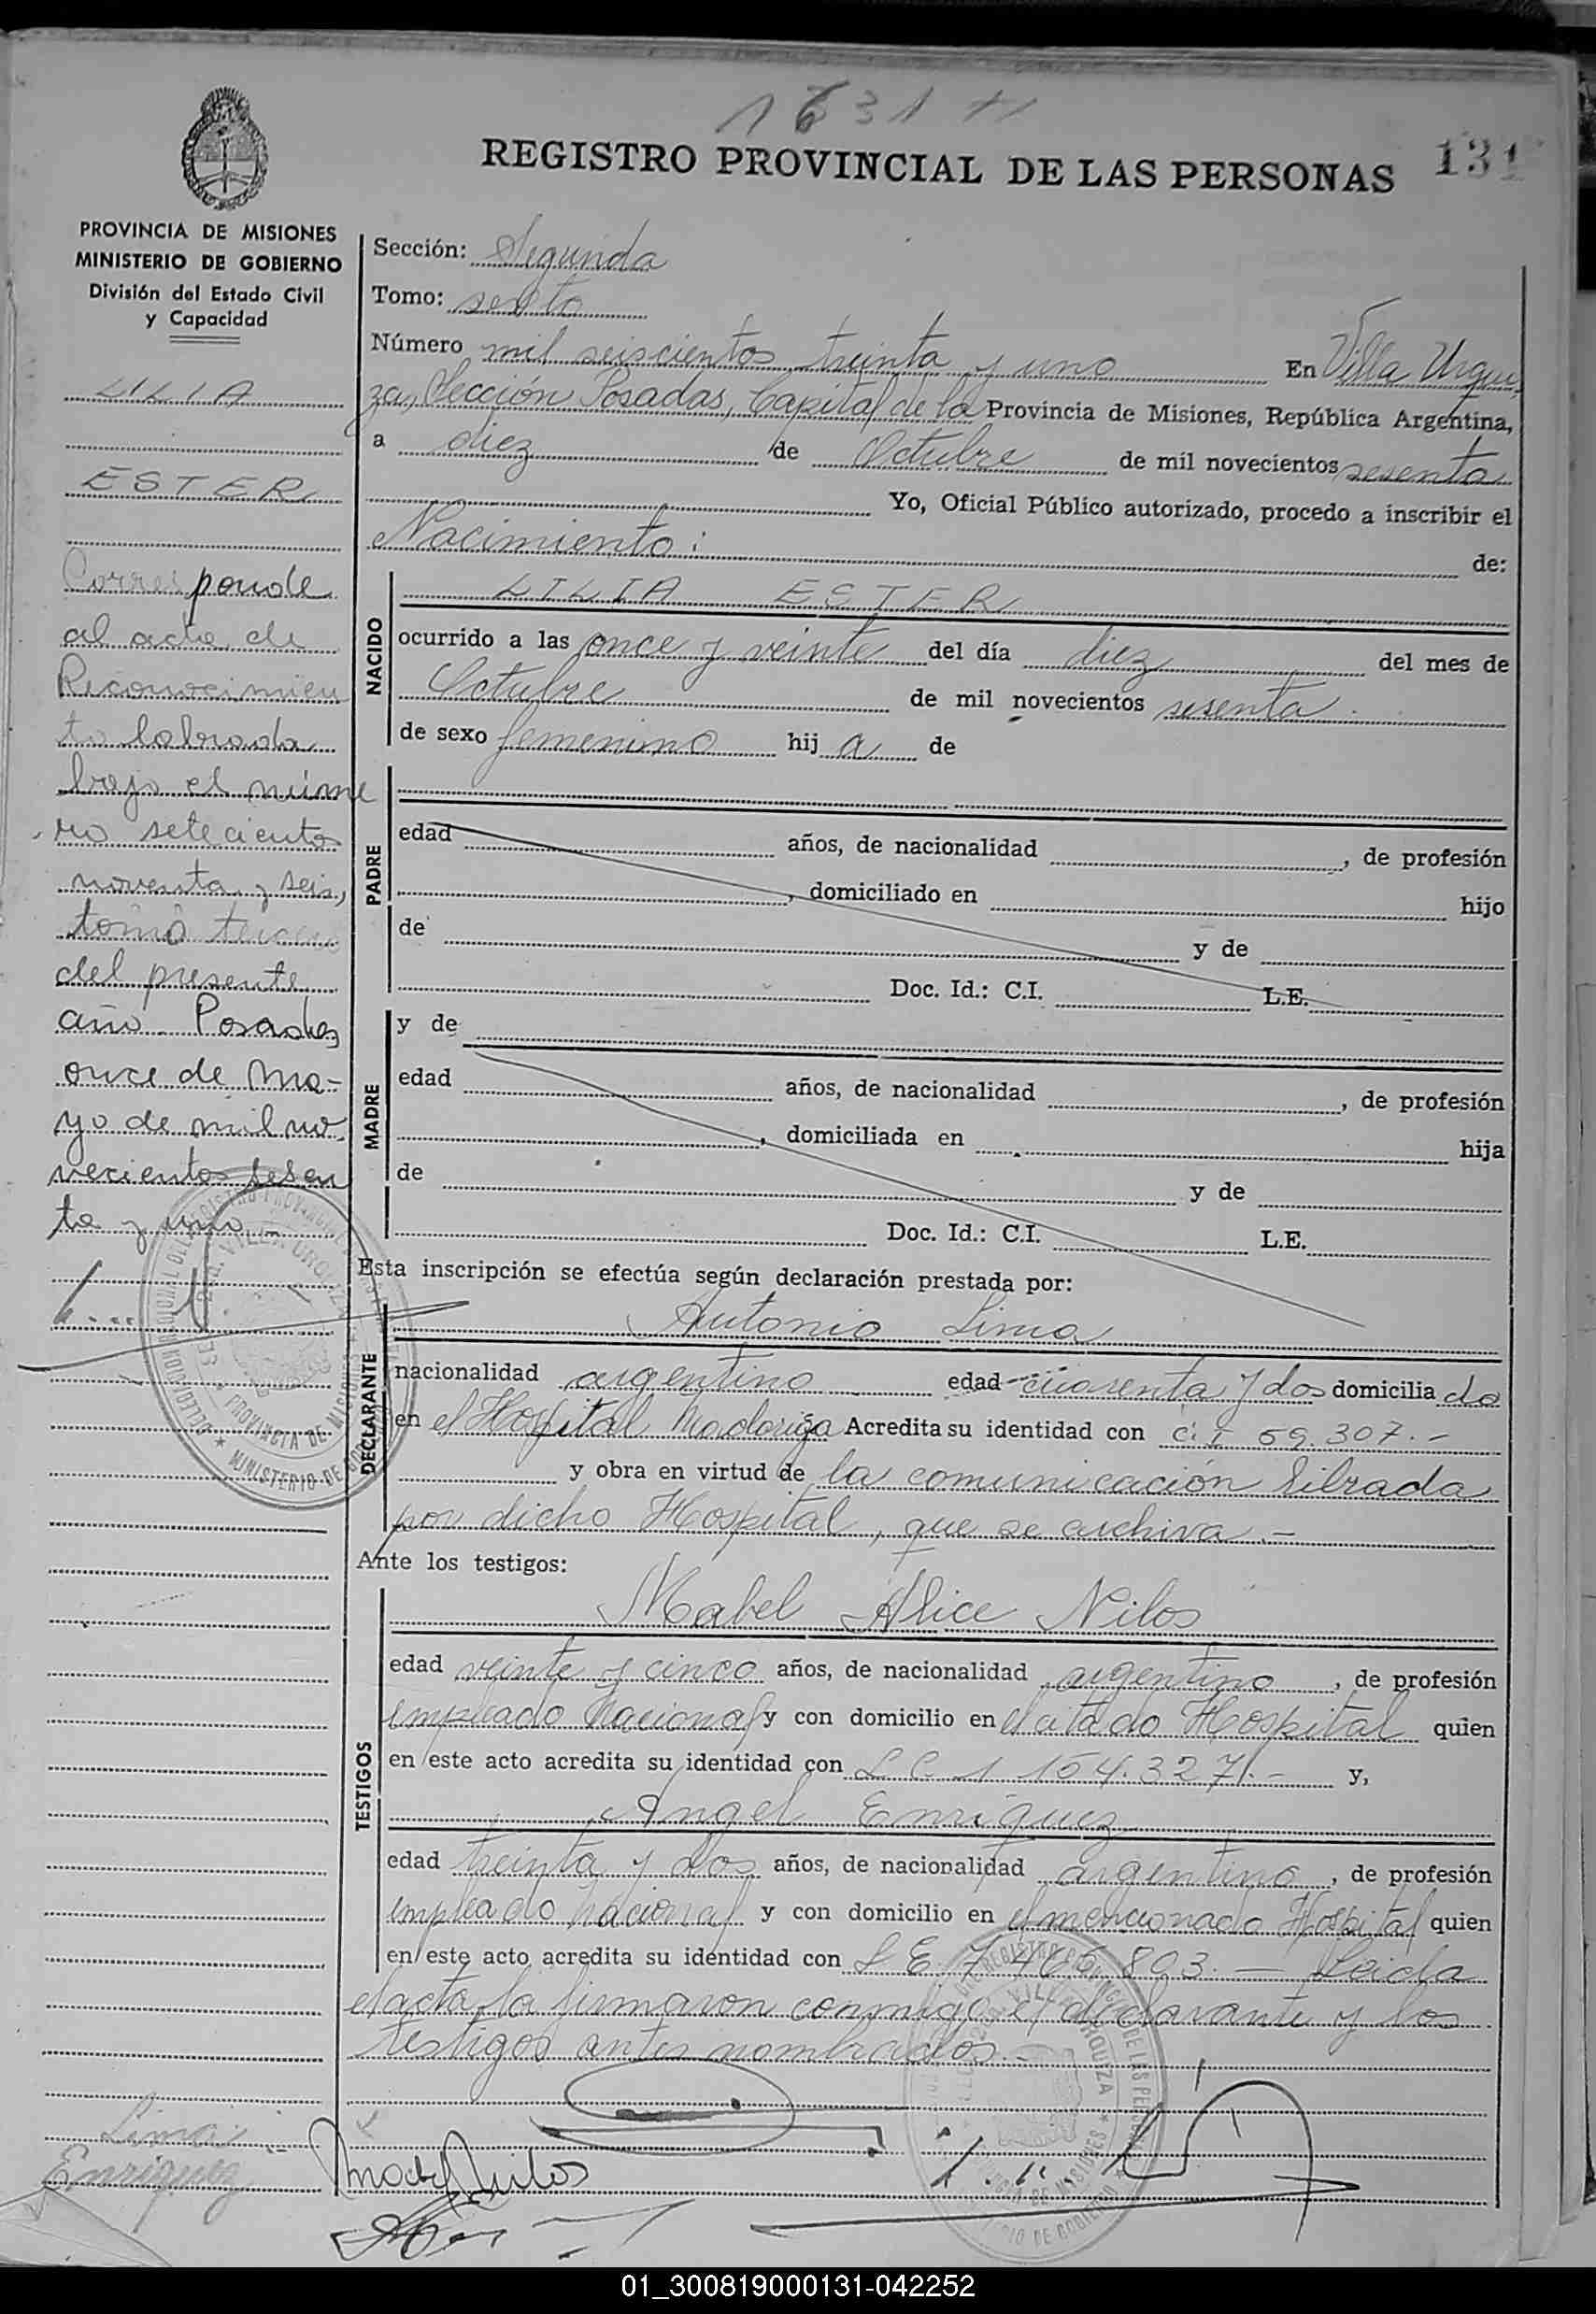 1631
REGISTRO PROVINCIAL DE LAS PERSONAS
131
PROVINCIA DE MISIONES
MINISTERIO DE GOBIERNO
División del Estado Civil
y Capacidad
LILIA
ESTER
Corresponde
al acta de
Reconocimien
to labrada
bajo el núme
ro setecientos
noventa y seis,
tomo tercero
del presente
año. Posadas,
once de ma-
yo de mil no
vecientos sesen
ta y uno.-
Sección: Segunda
Tomo: sexto
Número mil seiscientos treinta y uno En Villa Urqui
za, Sección Posadas, Capital de la Provincia de Misiones, República Argentina,
a diez de Octubre de mil novecientos sesenta
Yo, Oficial Público autorizado, procedo a inscribir el
Nacimiento: de:
NACIDO
LILIA ESTER
ocurrido a las once y veinte del día diez del mes de
Octubre de mil novecientos sesenta
de sexo femenino hij a de
PADRE
edad años, de nacionalidad , de profesión
, domiciliado en hijo
de y de
Doc. Id.: C.I. L.E.
MADRE
y de
edad años, de nacionalidad , de profesión
, domiciliada en hija
de y de
Doc. Id.: C.I. L.E.
Esta inscripción se efectúa según declaración prestada por:
DECLARANTE
Antonio Lima
nacionalidad argentino edad cuarenta y dos domicilia do
en el Hospital Madariaga Acredita su identidad con C.I 59.307.-
y obra en virtud de la comunicación librada
por dicho Hospital, que se archiva.-
Ante los testigos:
TESTIGOS
Mabel Alice Nilos
edad veinte y cinco años, de nacionalidad argentino, de profesión
empleado Nacional y con domicilio en el citado Hospital quien
en este acto acredita su identidad con L C 1 154.327.- y,
Angel Enriquez
edad treinta y dos años, de nacionalidad argentino, de profesión
empleado nacional y con domicilio en el mencionado Hospital quien
en este acto acredita su identidad con L E 7 466.893.- Leida
el acta, la firmaron conmigo el declarante y los
testigos antes nombrados.-
Lima
Enriquez
Mabel Nilos
01_300819000131-042252